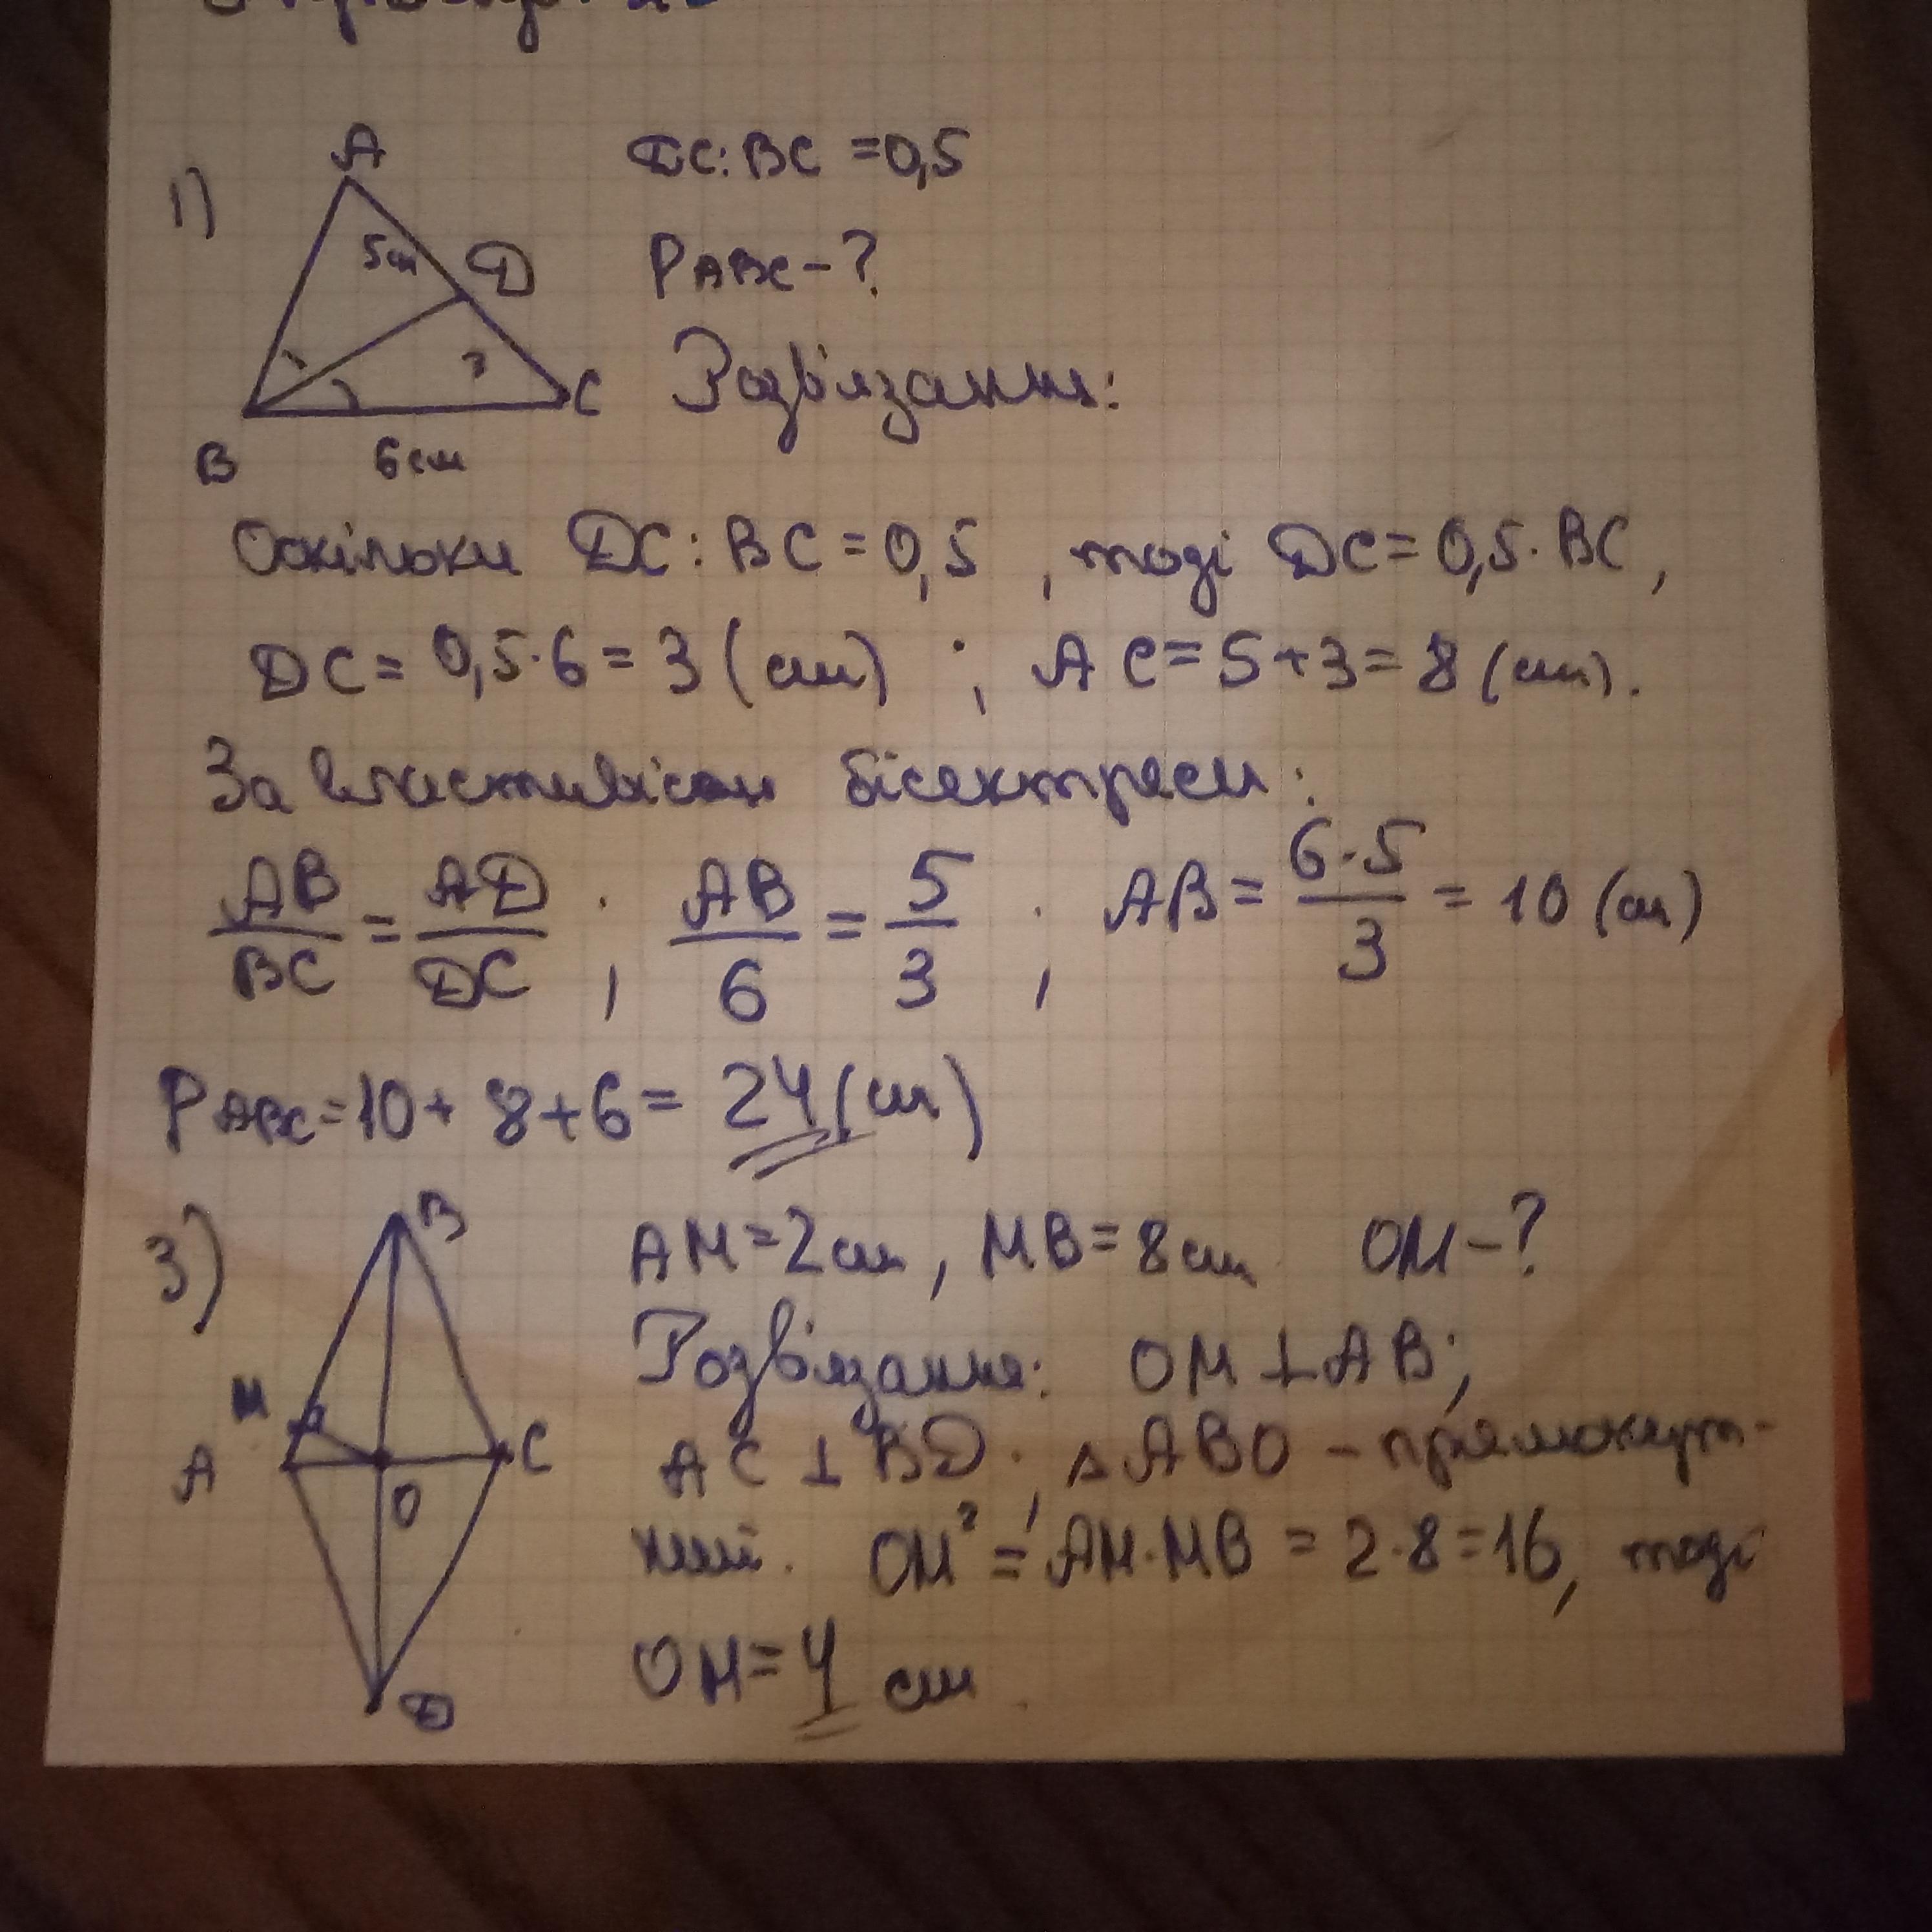 1)
A
5см
D
3
B
C
6см
DC:BC =0,5
PABC-?
Розв'язання:
Оскільки DC:BC=0,5, тоді DC=0,5·BC,
DC=0,5·6=3(см); AC=5+3=8(см).
За властивістю бісектриси:
AB/BC=AD/DC; AB/6=5/3; AB=6·5/3=10(см)
PABC=10+8+6=24(см)
3)
B
M
A
O
C
D
AM=2см, MB=8см OM-?
Розв'язання: OM⊥AB;
AC⊥BD; ΔABO-прямокут-
ний. OM²=AM·MB=2·8=16, тоді
OM=4 см.